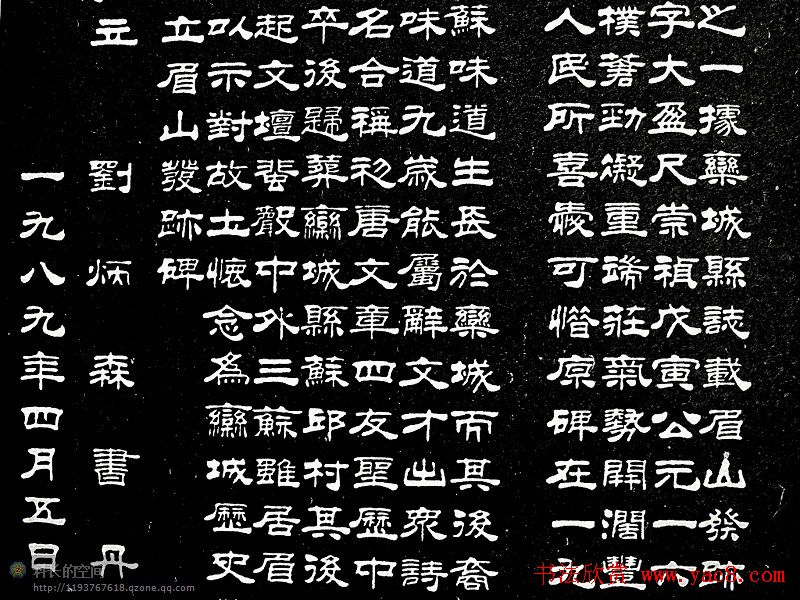 之一據欒城縣誌載眉山發跡
字大盈尺崇禎戊寅公元一六
樸著勁凝重端莊氣勢開濶豐
人民所喜愛可惜原碑在一九
蘇味道生長於欒城而其後裔
味道九歲能屬辭文才出眾詩
名合稱初唐文章四友聖歷中
卒後歸葬欒城縣蘇邱村其後
起文壇蜚聲中外三蘇雖居眉
以示對故土懷念為欒城歷史
立眉山發跡碑
立 劉炳森書丹
一九八九年四月五日
科长的空间
http://1193767618.qzone.qq.com
书法欣赏 www.yac8.com